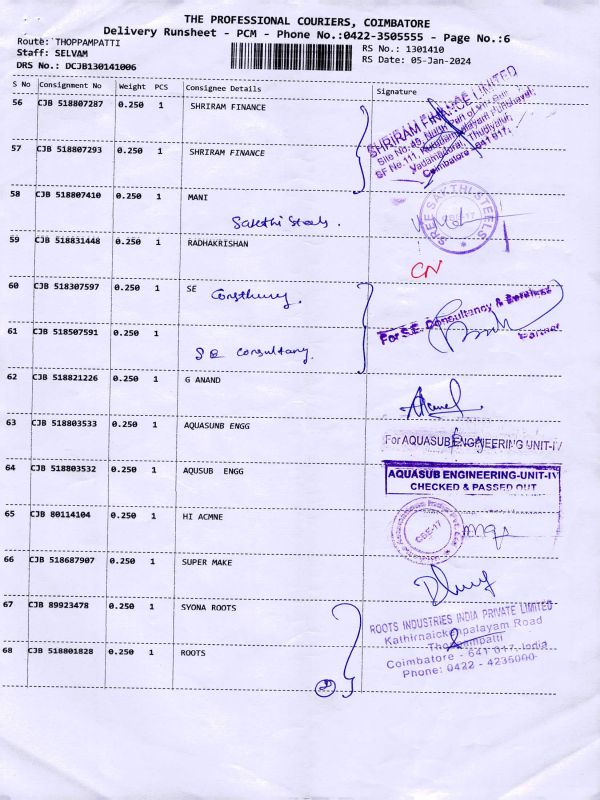 THE PROFESSIONAL COURIERS, COIMBATORE
Delivery Runsheet - PCM - Phone No.:0422-3505555 - Page No.:6
Route: THOPPAMPATTI RS No.: 1301410
Staff: SELVAM RS Date: 05-Jan-2024
DRS No.: DCJB130141006
S No Consignment No Weight PCS Consignee Details Signature
56 CJB 518807287 0.250 1 SHRIRAM FINANCE
SHRIRAM FINANCE LIMITED
57 CJB 518807293 0.250 1 SHRIRAM FINANCE
Coimbatore - 641 017.
58 CJB 518807410 0.250 1 MANI
Sakthi Steels.
SREE SAKTHI STEELS
CBE-17
59 CJB 518831448 0.250 1 RADHAKRISHAN
CN
60 CJB 518307597 0.250 1 SE
For S.E. Consultancy & Services
Partner
61 CJB 518507591 0.250 1
SE consultany.
62 CJB 518821226 0.250 1 G ANAND
63 CJB 518803533 0.250 1 AQUASUNB ENGG
For AQUASUB ENGINEERING UNIT-IV
64 CJB 518803532 0.250 1 AQUSUB ENGG
AQUASUB ENGINEERING-UNIT-IV
CHECKED & PASSED OUT
65 CJB 80114104 0.250 1 HI ACMNE
CBE-17
66 CJB 518687907 0.250 1 SUPER MAKE
67 CJB 89923478 0.250 1 SYONA ROOTS
ROOTS INDUSTRIES INDIA PRIVATE LIMITED
Kathirnaickenpalayam Road
Thoppampatti
68 CJB 518801828 0.250 1 ROOTS
Coimbatore - 641 017. India
Phone: 0422 - 4236000